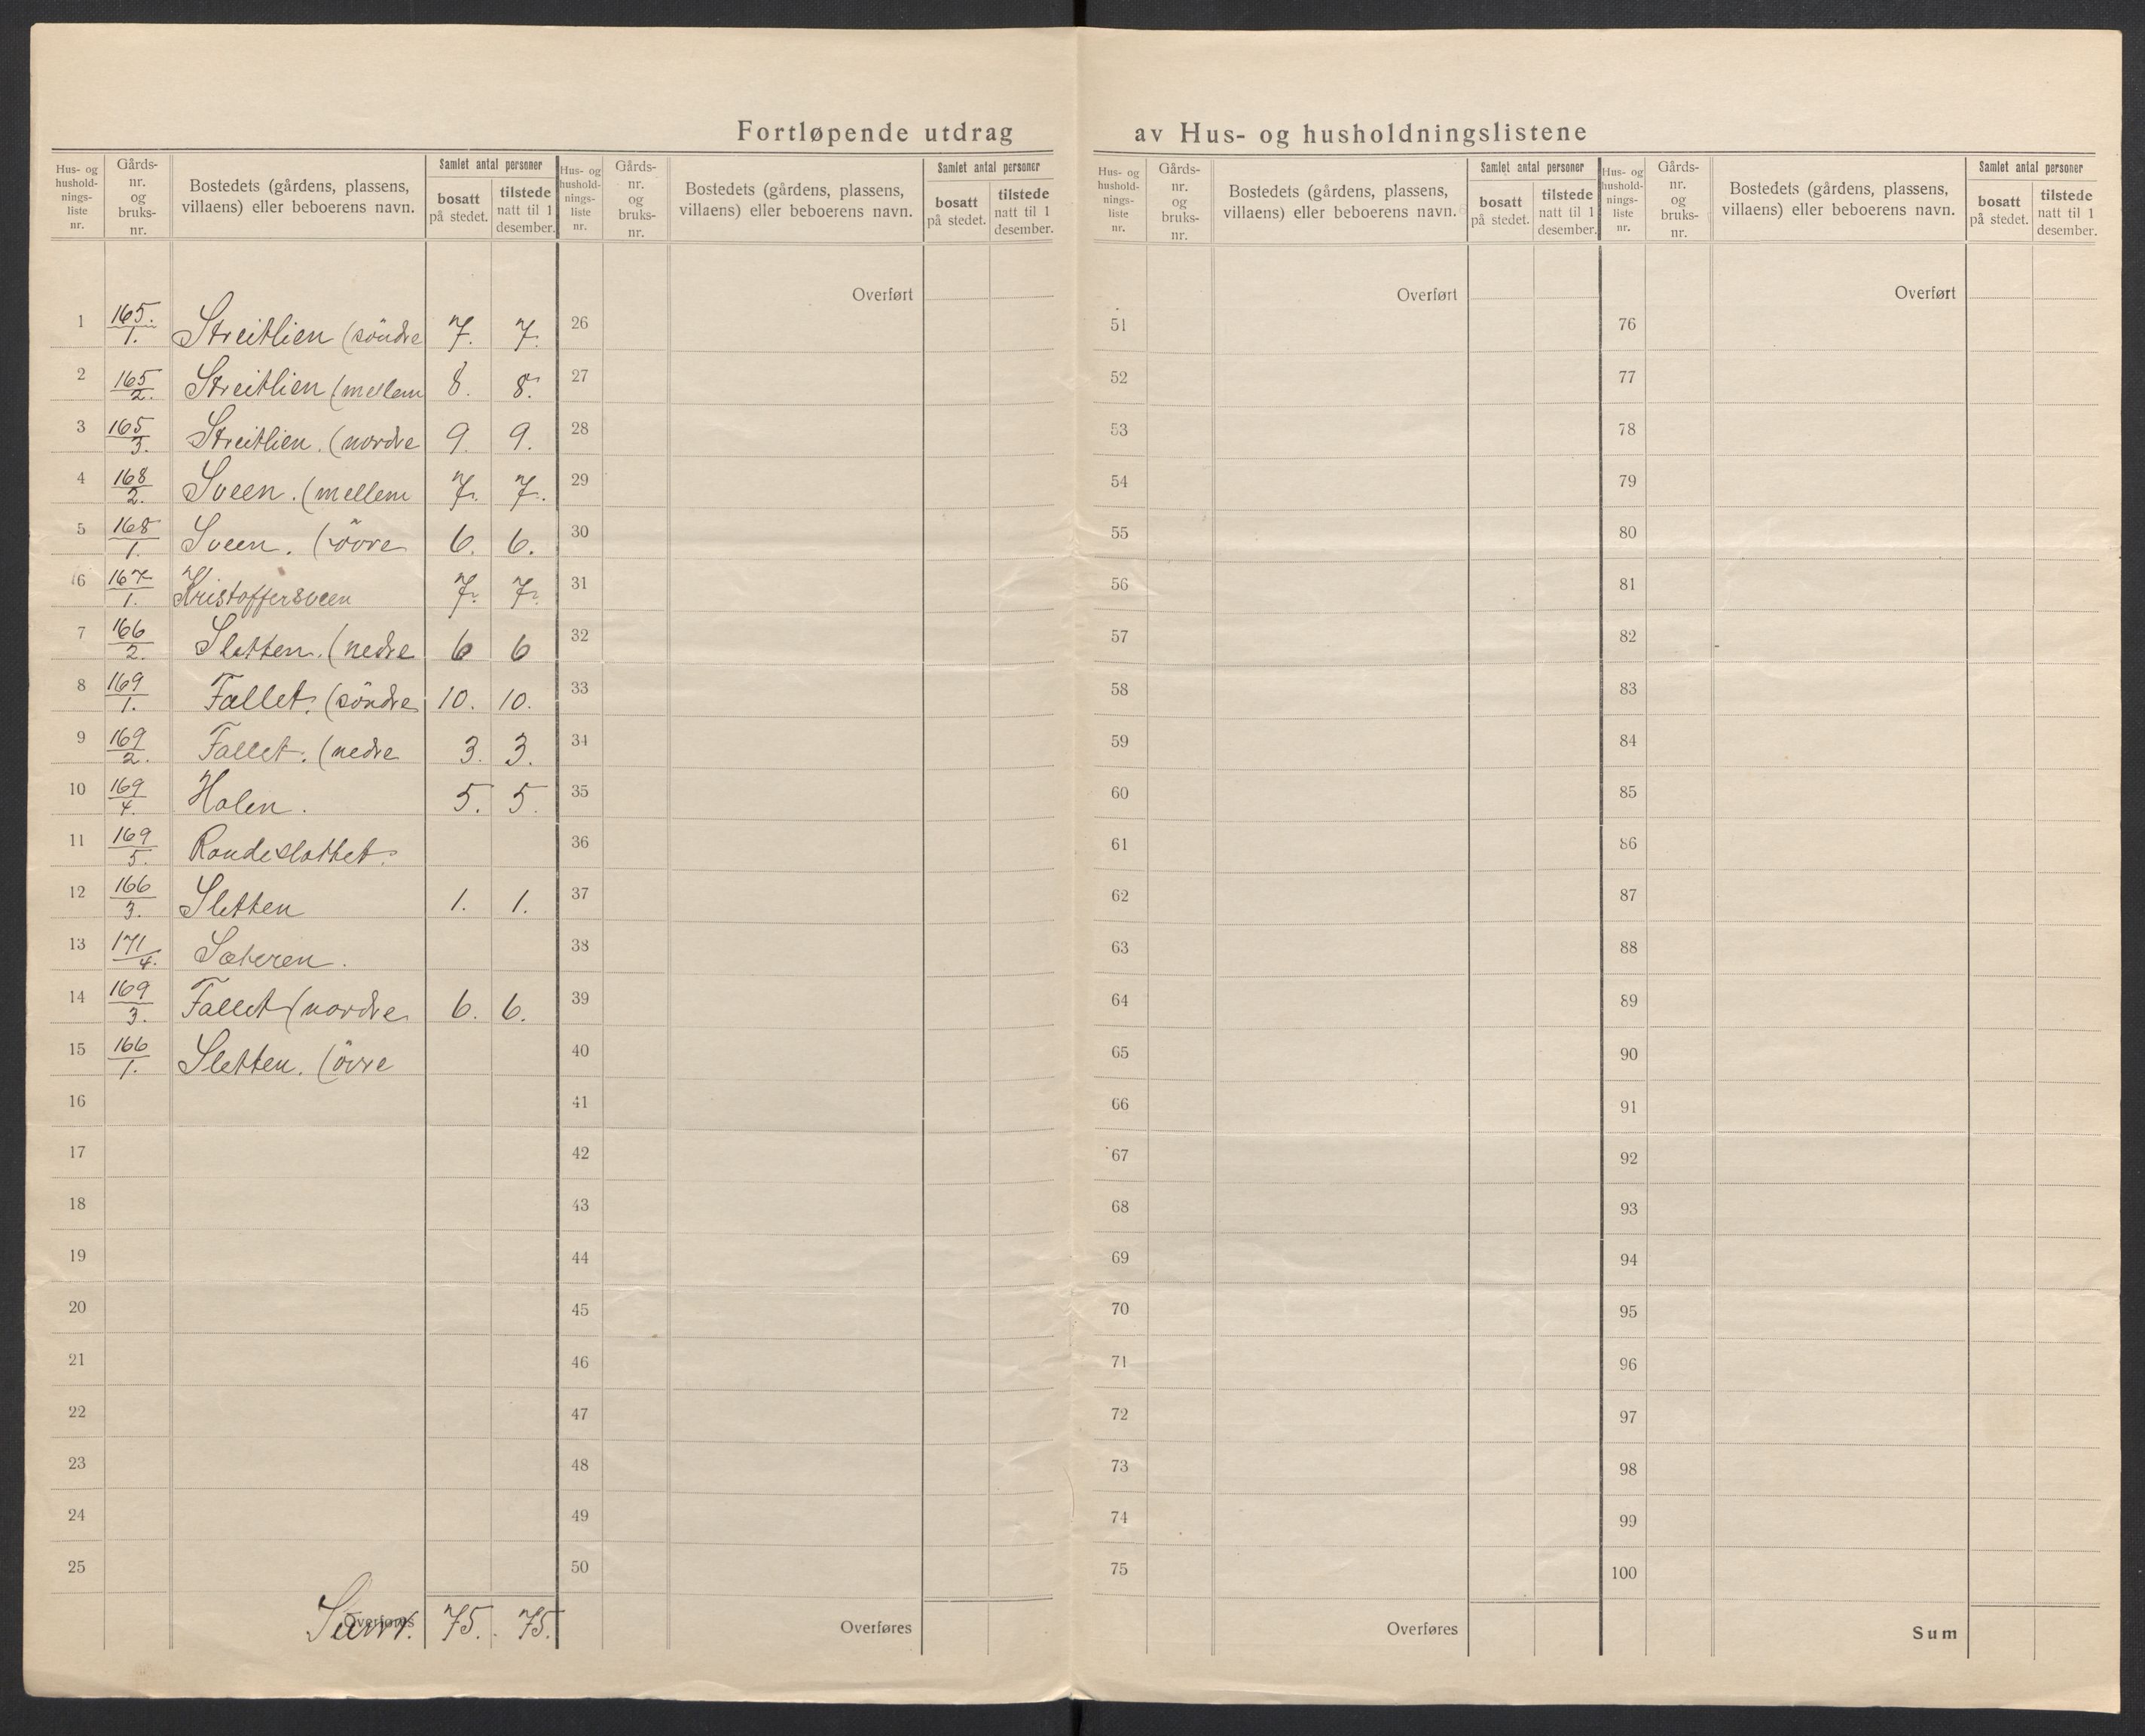 Fortløpende utdrag av Hus- og husholdningslistene
Hus- og hushold- nings- liste nr. | Gårds- nr. og bruks- nr. | Bostedets (gårdens, plassens, villaens) eller beboerens navn. | Samlet antal personer | bosatt på stedet. | tilstede natt til 1 desember.
Hus- og hushold- nings- liste nr. | Gårds- nr. og bruks- nr. | Bostedets (gårdens, plassens, villaens) eller beboerens navn. | Samlet antal personer | bosatt på stedet. | tilstede natt til 1 desember.
Hus- og hushold- nings- liste nr. | Gårds- nr. og bruks- nr. | Bostedets (gårdens, plassens, villaens) eller beboerens navn. | Samlet antal personer | bosatt på stedet. | tilstede natt til 1 desember.
Hus- og hushold- nings- liste nr. | Gårds- nr. og bruks- nr. | Bostedets (gårdens, plassens, villaens) eller beboerens navn. | Samlet antal personer | bosatt på stedet. | tilstede natt til 1 desember.
Overført Overført Overført
1 165./1. Streitlien (söndre 7. 7. 26 51 76
2 165/2. Streitlien (mellem 8. 8. 27 52 77
3 165/3. Streitlien. (nordre 9. 9. 28 53 78
4 168/2. Sveen. (mellem 7. 7. 29 54 79
5 168/1. Sveen. (övre 6. 6. 30 55 80
6 167/1. Kristoffersveen 7. 7. 31 56 81
7 166/2. Sletten. (nedre 6 6 32 57 82
8 169/1. Fallet. (söndre 10. 10. 33 58 83
9 169/2. Fallet. (nedre 3. 3. 34 59 84
10 169/4. Holen. 5. 5. 35 60 85
11 169/5. Rondeslottet. 36 61 86
12 166/3. Sletten 1. 1. 37 62 87
13 171/4. Sæteren. 38 63 88
14 169/3. Fallet (nordre 6. 6. 39 64 89
15 166/1. Sletten. (övre 40 65 90
16 41 66 91
17 42 67 92
18 43 68 93
19 44 69 94
20 45 70 95
21 46 71 96
22 47 72 97
23 48 73 98
24 49 74 99
25 50 75 100
Overføres Sum. 75. 75. Overføres Overføres Sum